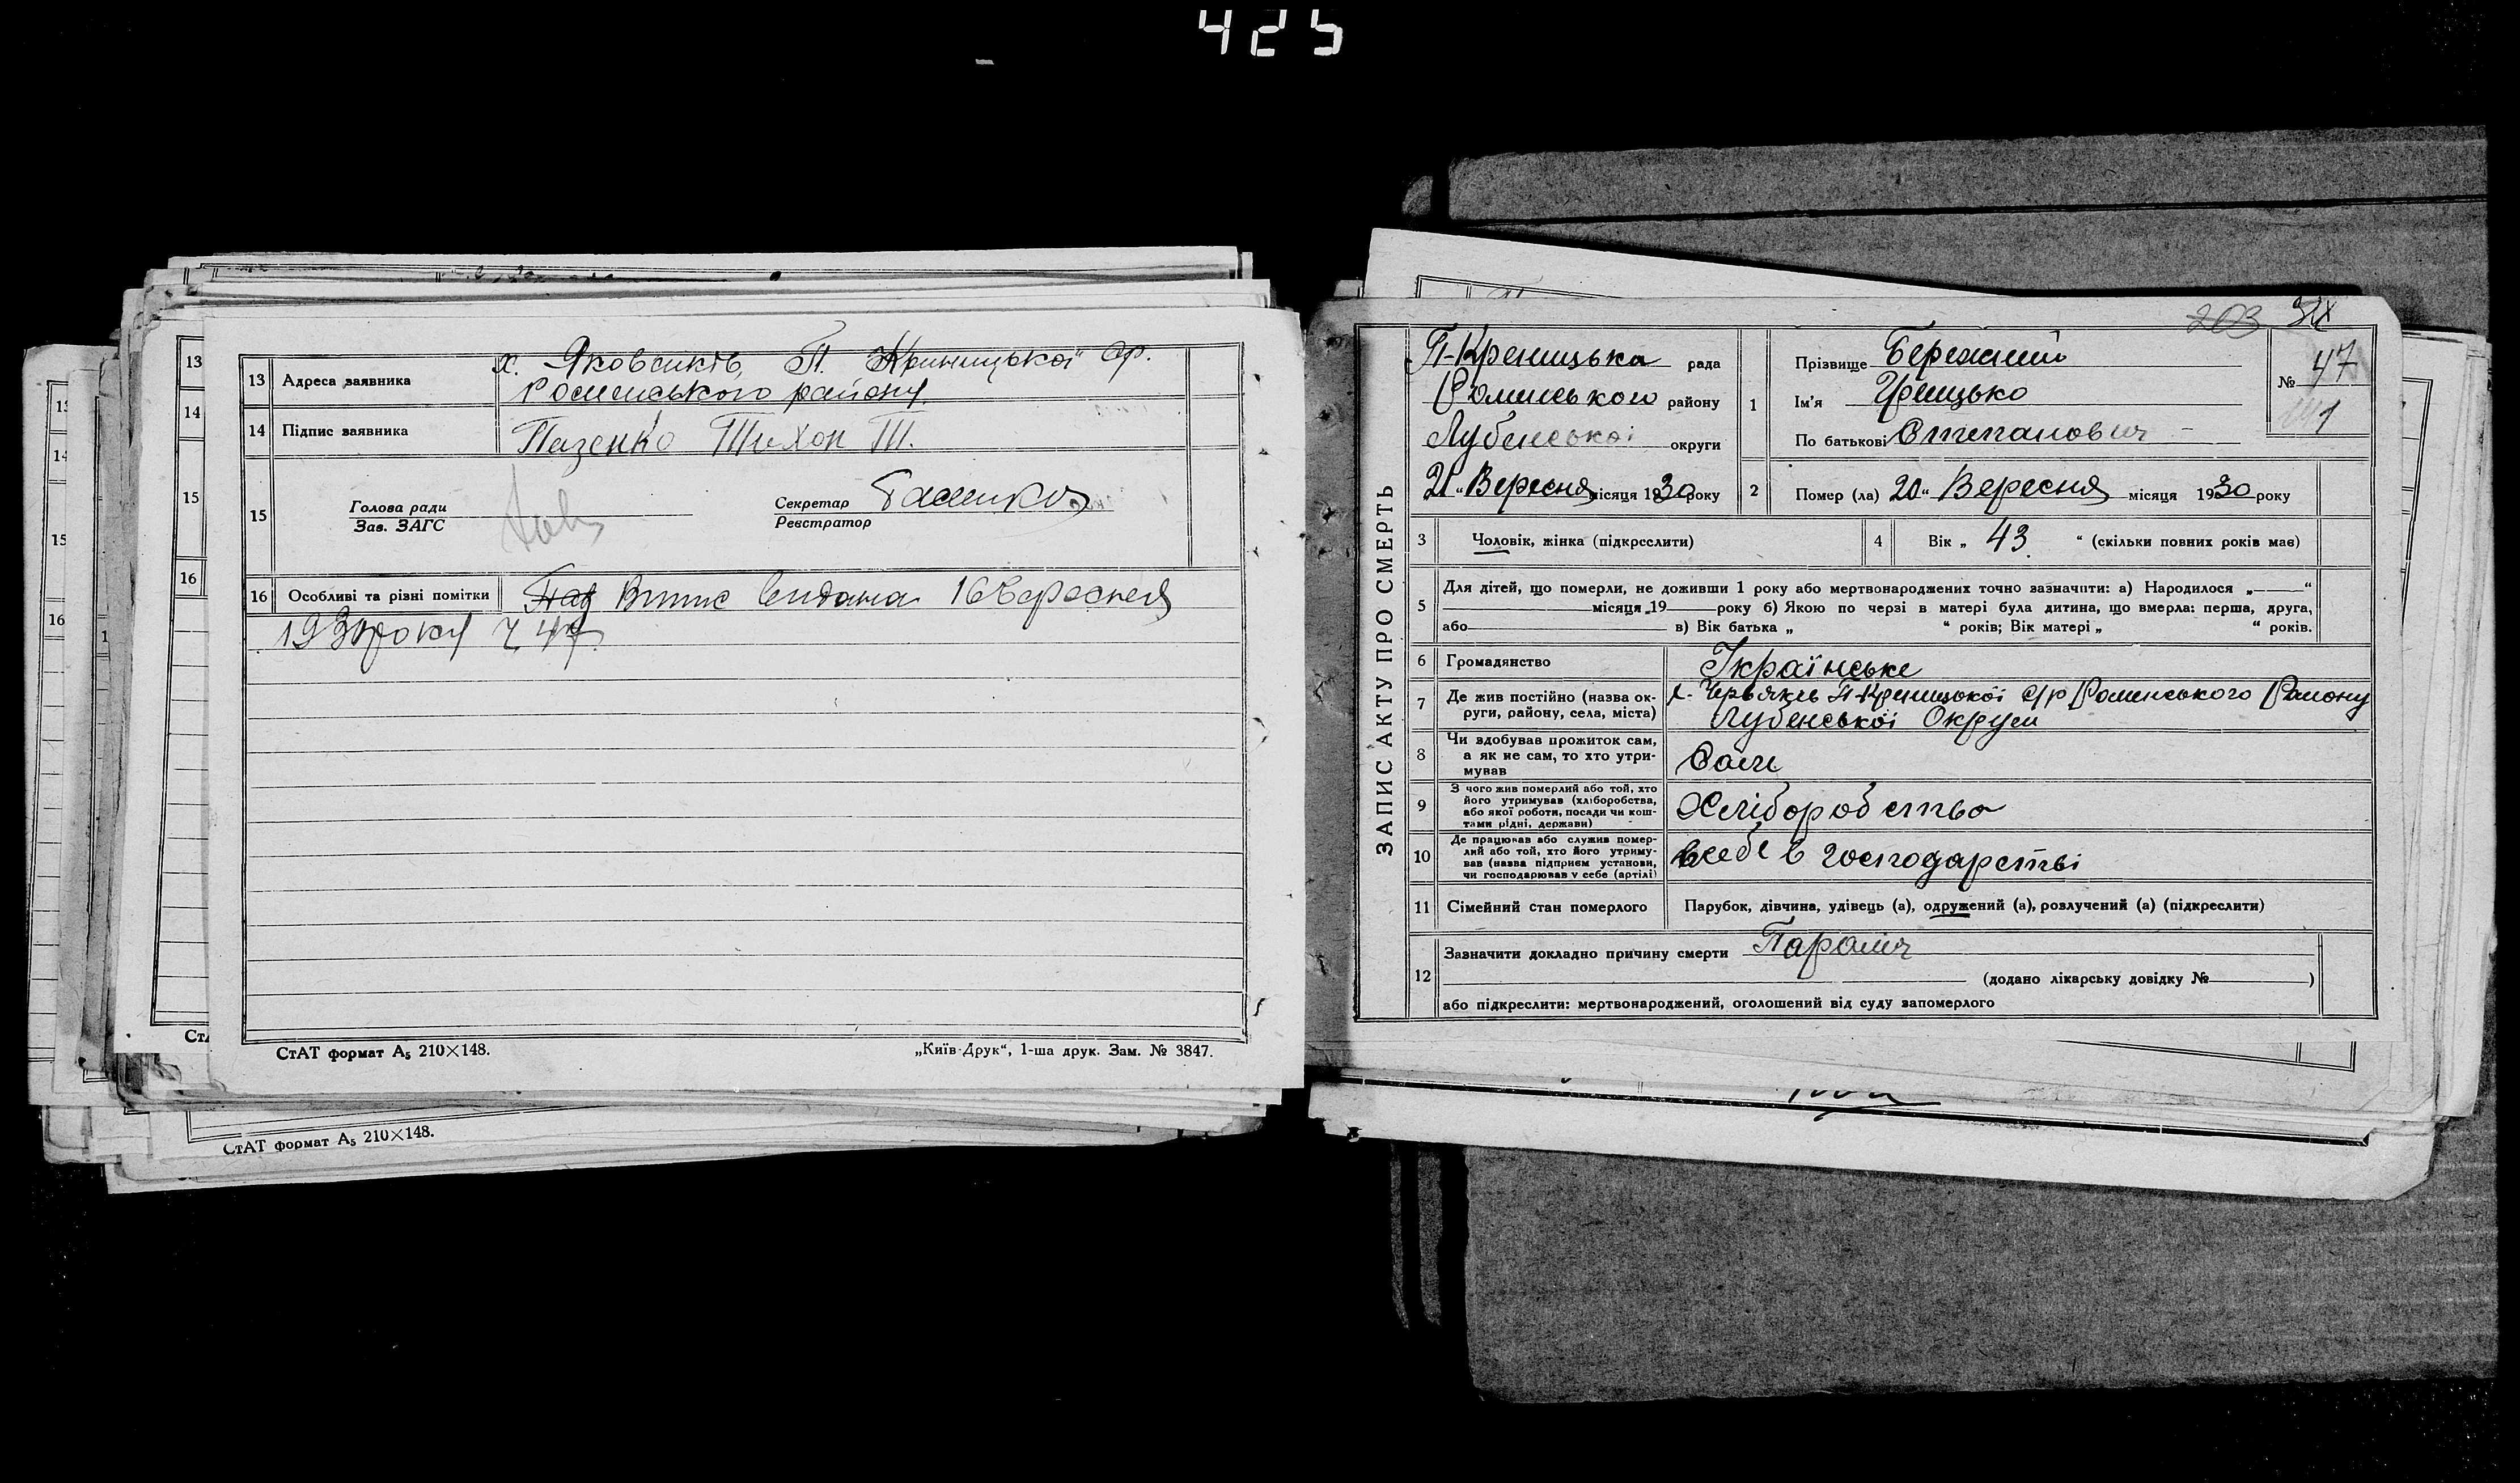 425
13 Адреса заявника х. Яковенків, П. Криницької с/р.
Роменського району.
14 Підпис заявника Пазенко Тихон Т.
15 Голова ради
Зав. ЗАГС
Секретар
Реєстратор
16 Особливі та різні помітки Випис видана 16 Вересня
1930 року Ч 47
СтАТ формат А5 210×148.
„Київ-Друк“, 1-ша друк. Зам. № 3847.
СтАТ формат А5 210×148.
203
ЗАПИС АКТУ ПРО СМЕРТЬ
П-Креницька рада
Роминського району
Лубенської округи
21 „ Вересня місяця 1930 року
1 Прізвище Бережний
Ім'я Грицько
По батькові Степанович
№ 47
2 Помер (ла) 20 “ Вересня місяця 1930 року
3 Чоловік, жінка (підкреслити)
4 Вік „ 43 “ (скільки повних років має)
5 Для дітей, що померли, не доживши 1 року або мертвонароджених точно зазначити: а) Народилося „ “
місяця 19 року б) Якою по черзі в матері була дитина, що вмерла: перша, друга,
або в) Вік батька „ “ років; Вік матері „ “ років.
6 Громадянство Українське
7 Де жив постійно (назва ок-
руги, району, села, міста) П-Креницької с/р Роменського Району
Лубенської Округи
8 Чи здобував прожиток сам,
а як не сам, то хто утри-
мував Сам
9 З чого жив померлий або той, хто
його утримував (хліборобства,
або якої роботи, посади чи кош-
тами рідні, держави) Хліборобство
10 Де працював або служив помер-
лий або той, хто його утриму-
вав (назва підприєм установи,
чи господарював у себе (артілі) в себе в господарстві
11 Сімейний стан померлого Парубок, дівчина, удівець (а), одружений (а), розлучений (а) (підкреслити)
12 Зазначити докладно причину смерти Параліч
(додано лікарську довідку № )
або підкреслити: мертвонароджений, оголошений від суду запомерлого